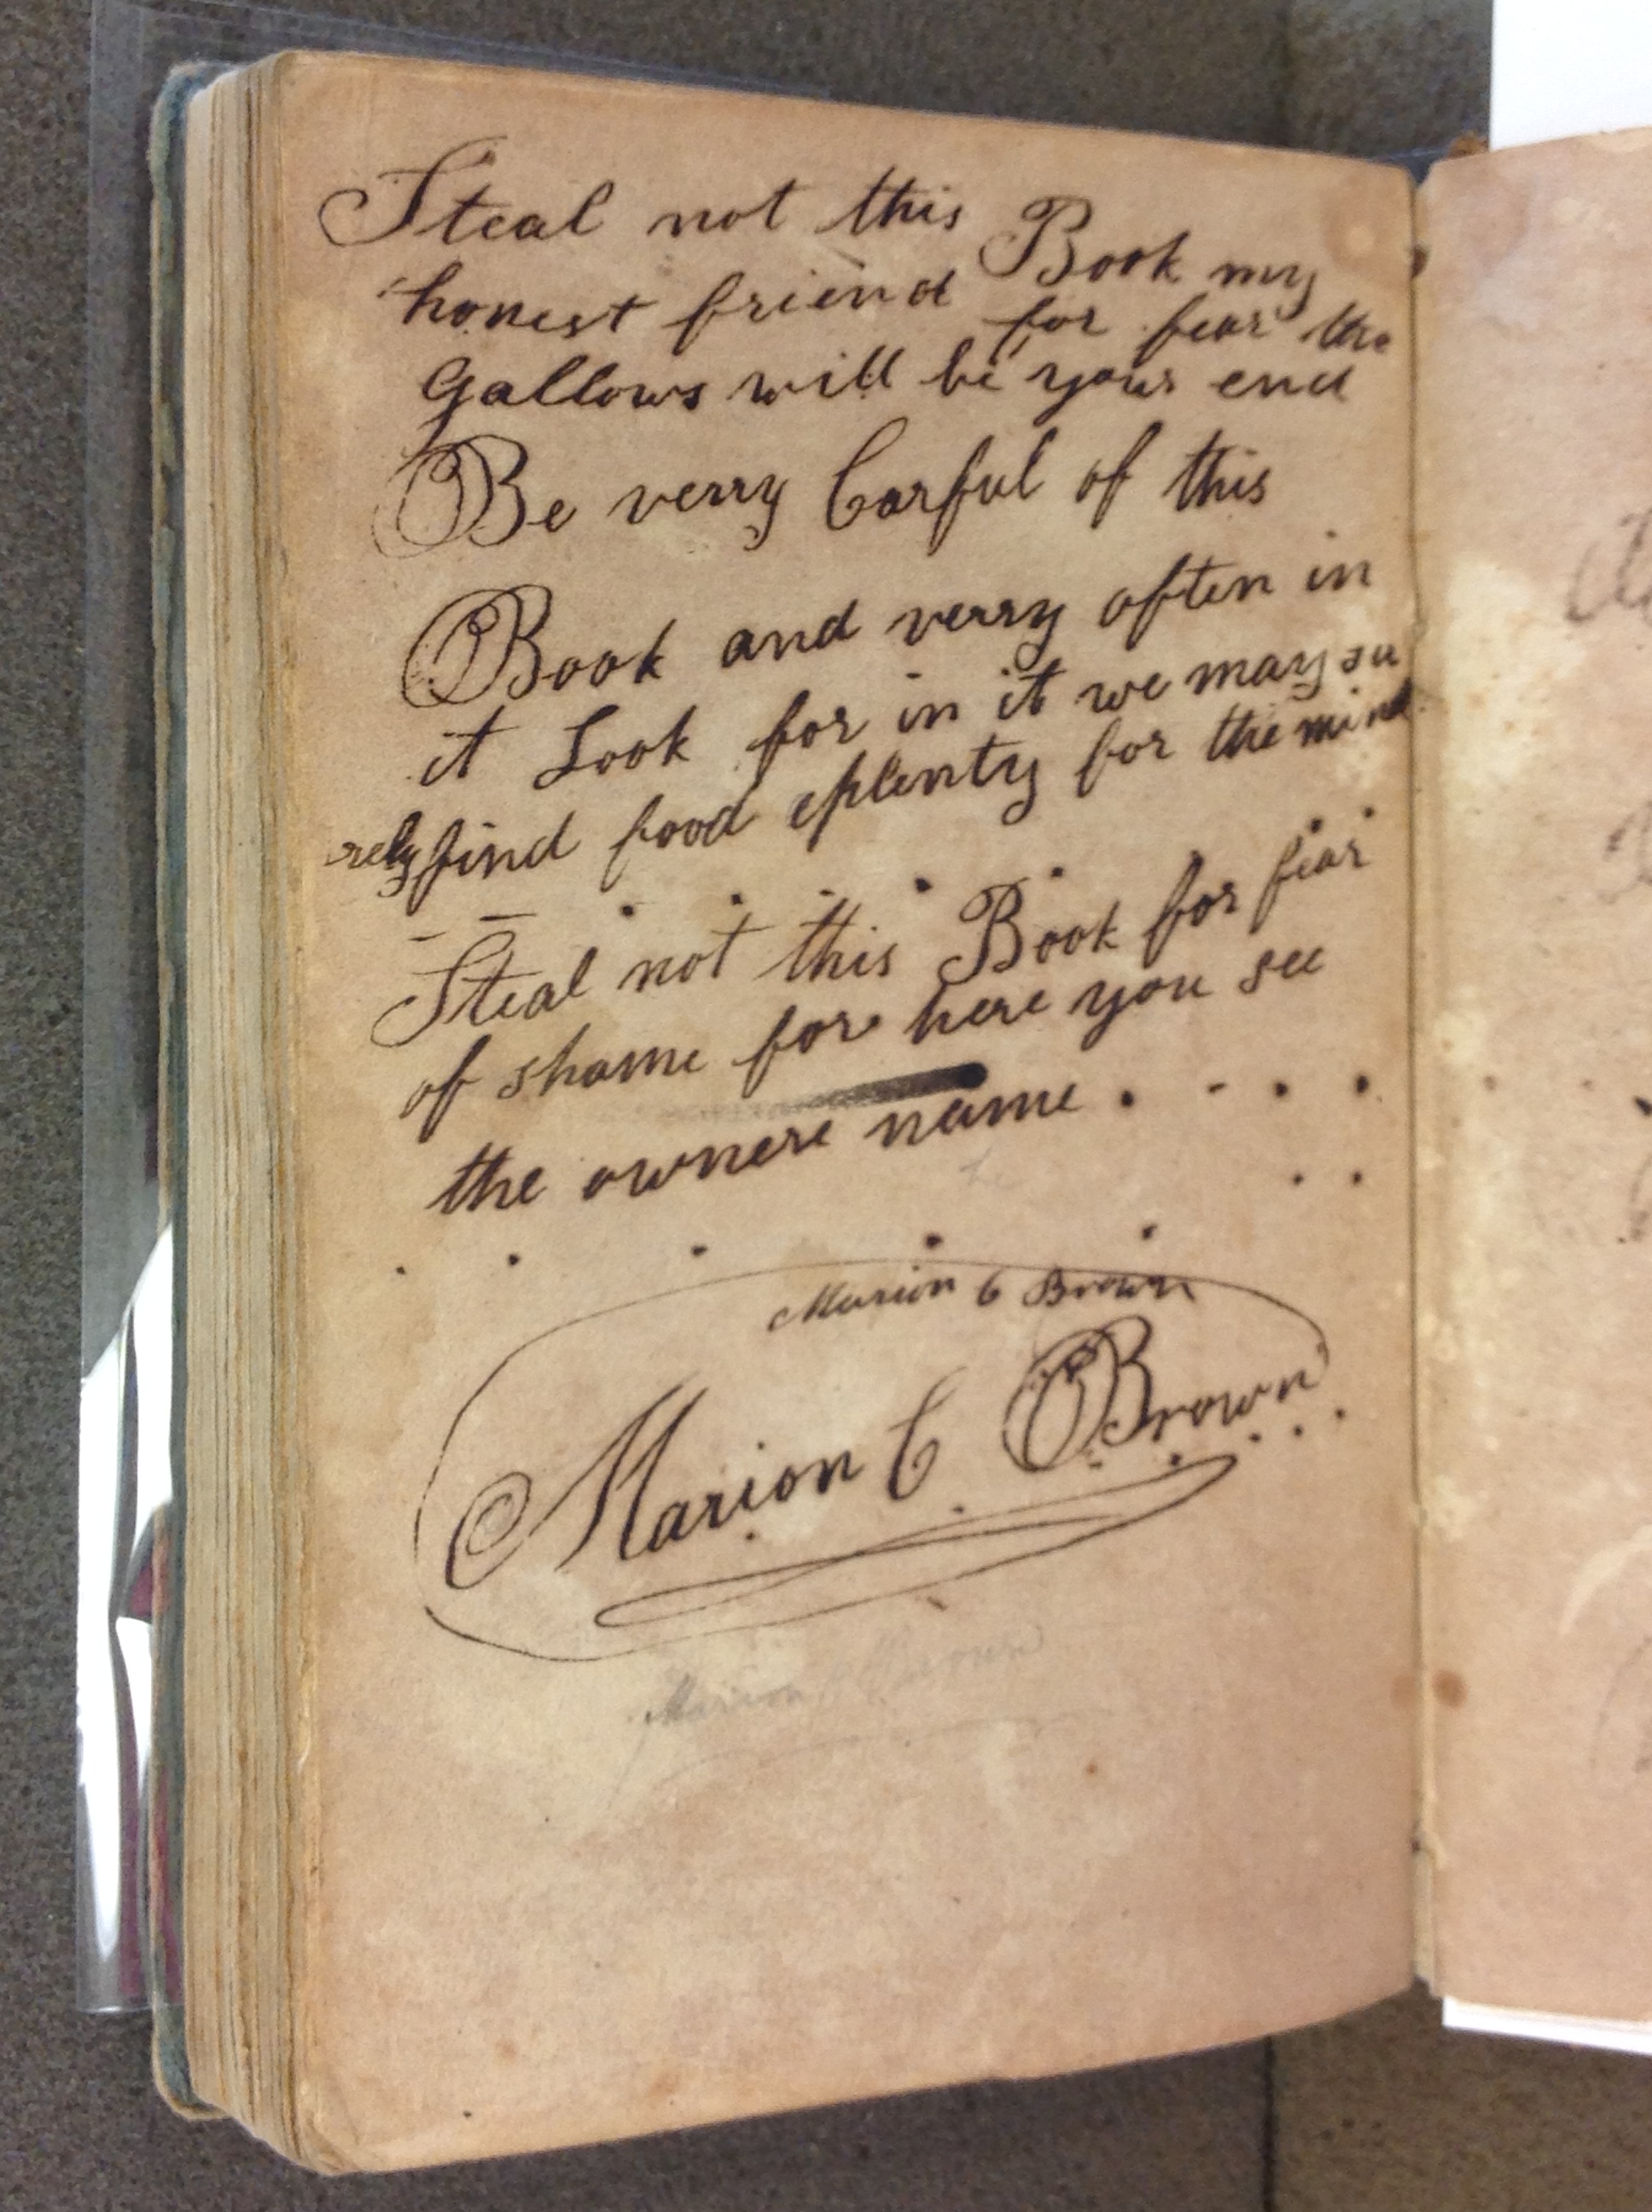 Steal not this Book my
honest friend for fear the
Gallows will be your end
Be verry Carful of this
Book and verry often in
it Look for in it we may su
rely find food eplenty for the mind
Steal not this Book for fear
of shame for here you see
the owners name . - . .
Marion C Brown
Marion C Brown
Marion C Brown